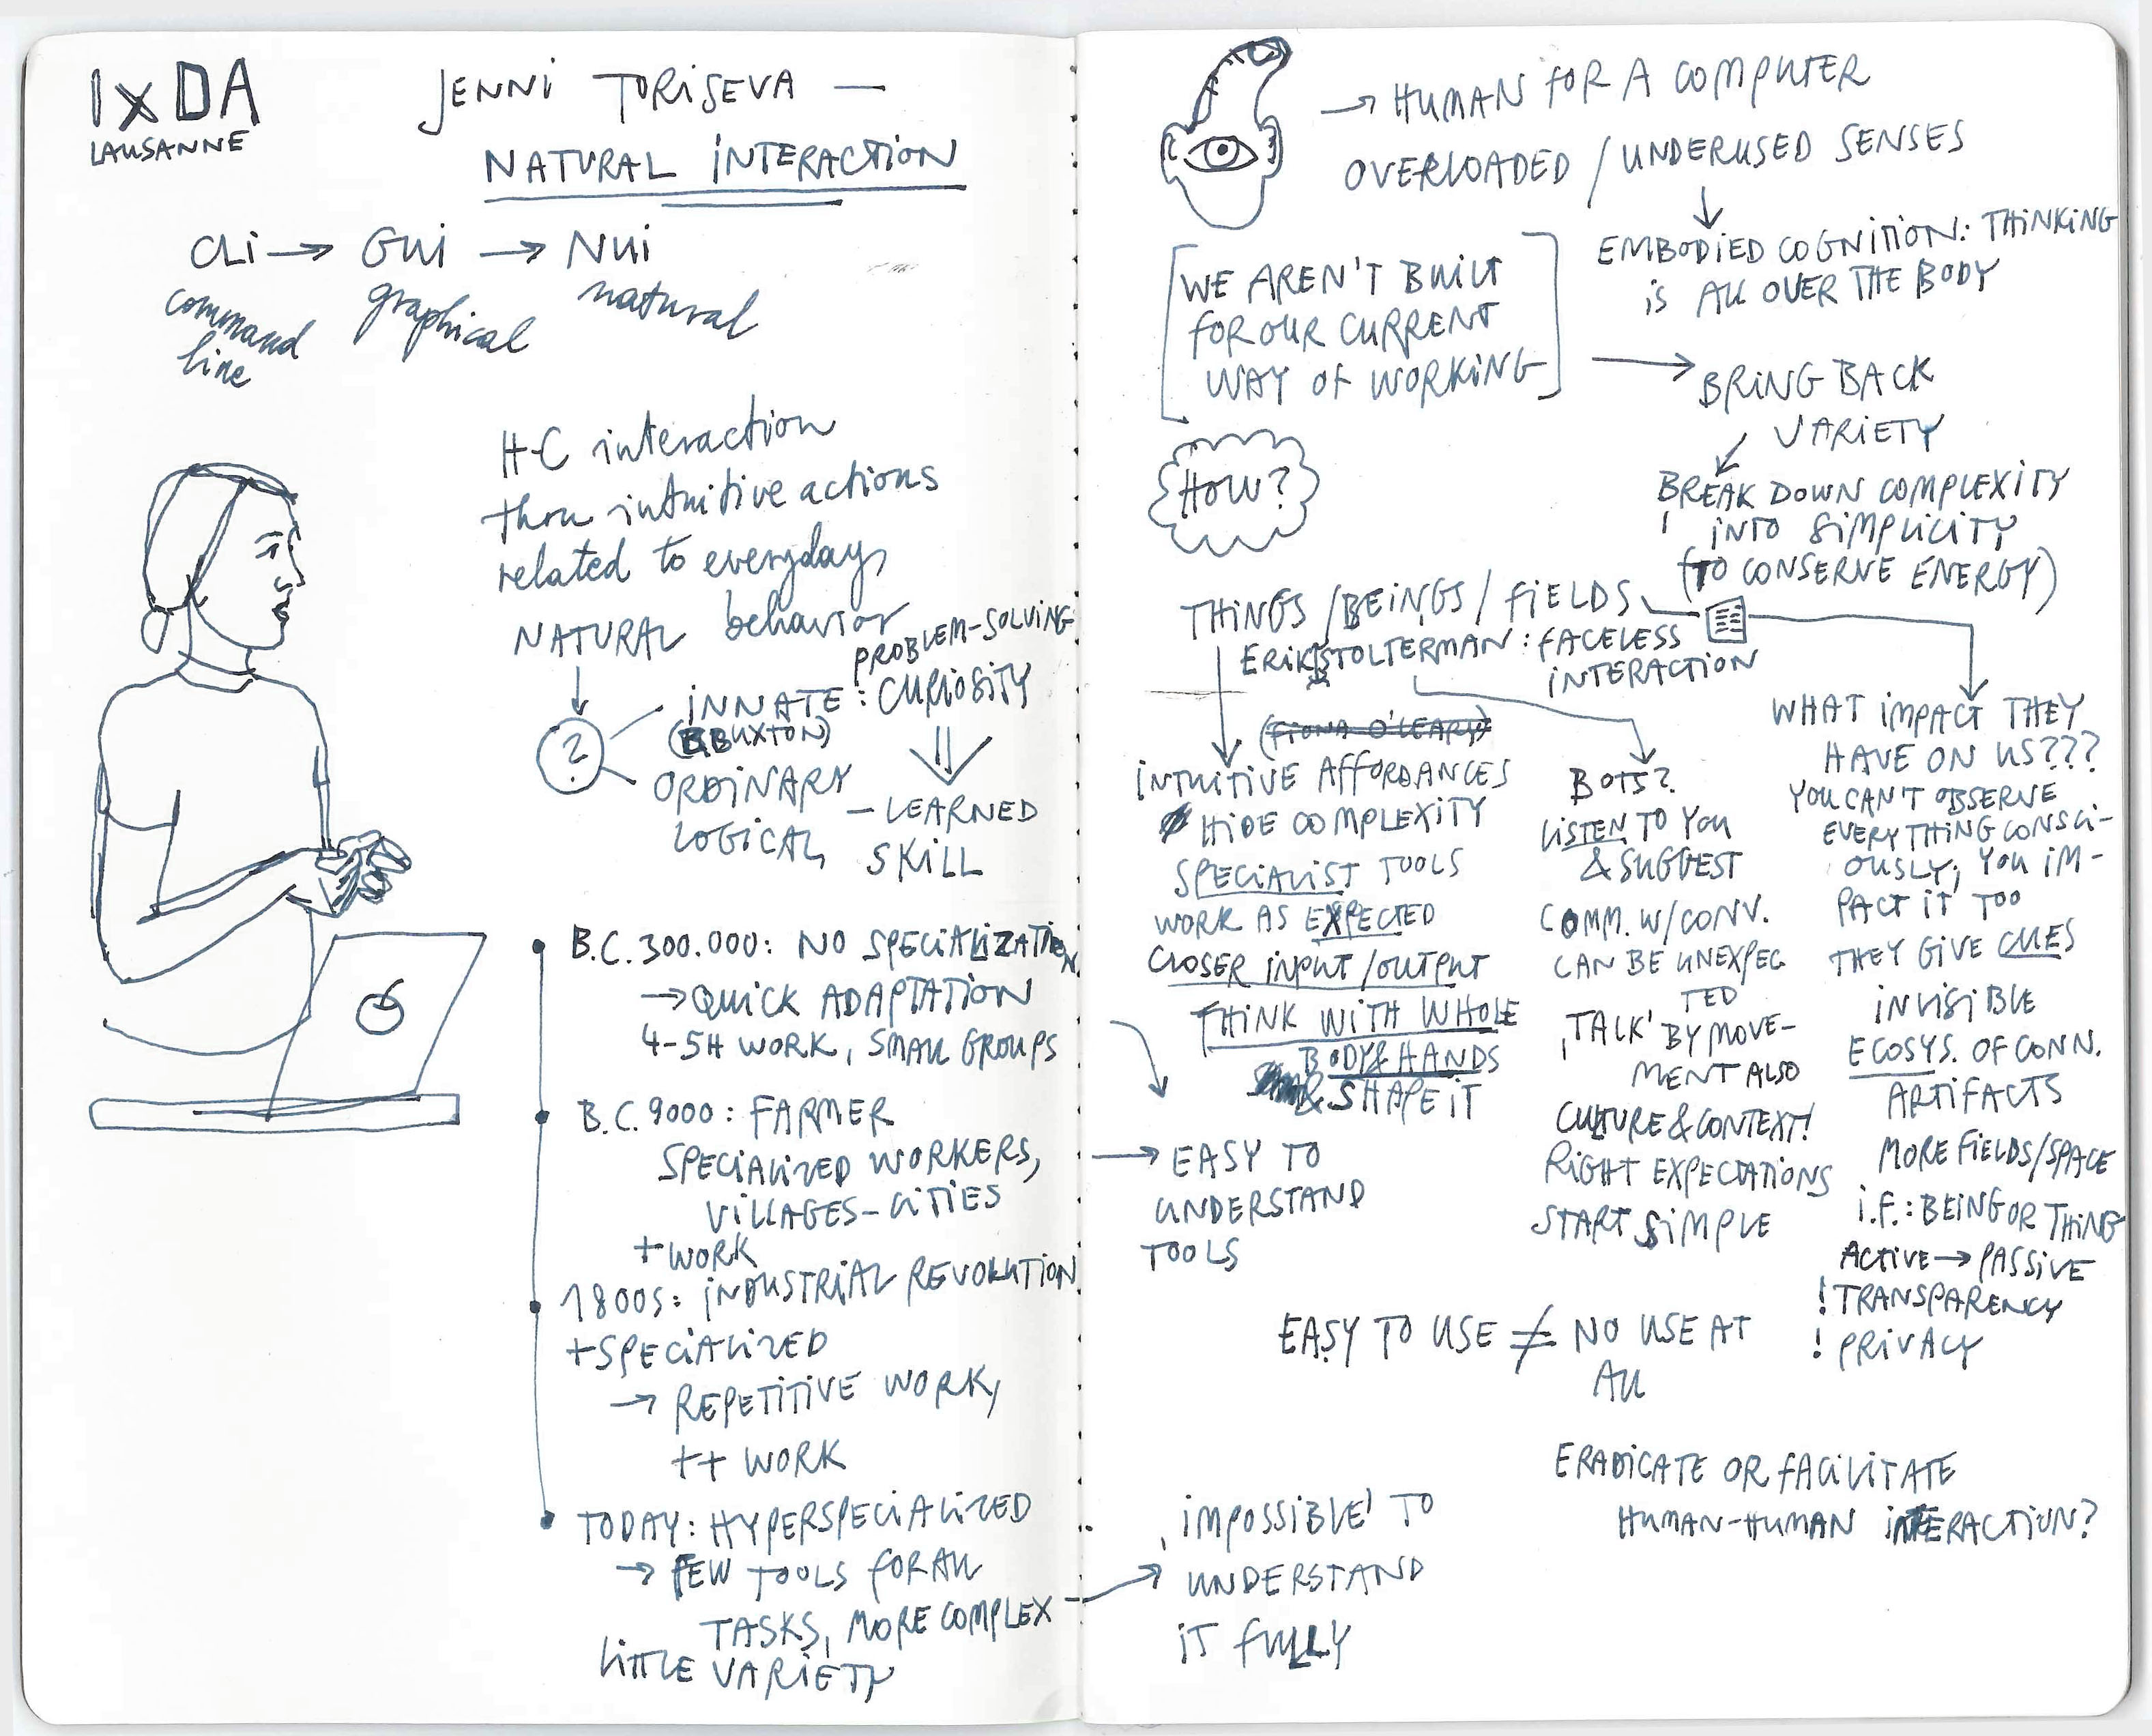 IxDA
LAUSANNE
JENNi TORiSEVA —
NATURAL iNTERACTiON
CLi → Gui → Nui
command
line
graphical
natural
H-C interaction
thru intuitive actions
related to everyday
behavior
NATURAL
?
iNNATE : CURiOSiTY
PROBLEM-SOLViNG
(B BUXTON)
ORDiNARY
LOGiCAL
— LEARNED
SKiLL
B.C. 300.000: NO SPECiALiZATiON
→ QUiCK ADAPTATiON
4-5H WORK, SMALL GROUPS
B.C. 9000: FARMER
SPECiALiZED WORKERS,
ViLLAGES – CiTiES
+ WORK
1800S: iNDUSTRiAL REVOLUTiON
+ SPECiALiZED
→ REPETiTiVE WORK,
++ WORK
TODAY: HYPERSPECiALiZED
→ FEW TOOLS FOR ALL
TASKS, MORE COMPLEX
LiTTLE VARiETY
→ HUMAN FOR A COMPUTER
OVERLOADED / UNDERUSED SENSES
EMBODiED COGNiTiON: THiNKiNG
iS ALL OVER THE BODY
[WE AREN'T BUiLT
FOR OUR CURRENT
WAY OF WORKiNG]
→ BRiNG BACK
VARiETY
BREAK DOWN COMPLEXiTY
iNTO SiMPLiCiTY
(TO CONSERVE ENERGY)
HOW?
THiNGS / BEiNGS / FiELDS
ERiK STOLTERMAN: FACELESS
iNTERACTiON
(FiONA O'LEARY)
iNTUiTiVE AFFORDANCES
HiDE COMPLEXiTY
SPECiALiST TOOLS
WORK AS EXPECTED
CLOSER iNPUT/OUTPUT
THiNK WiTH WHOLE
BODY & HANDS
& SHAPE iT
→ EASY TO
UNDERSTAND
TOOLS
BOTS?
LiSTEN TO YOU
& SUGGEST
COMM. W/CONV.
CAN BE UNEXPEC
TED
'TALK' BY MOVE-
MENT ALSO
CULTURE & CONTEXT!
RiGHT EXPECTATiONS
START SiMPLE
WHAT iMPACT THEY
HAVE ON US???
YOU CAN'T OBSERVE
EVERYTHiNG CONSCi-
OUSLY, YOU iM-
PACT iT TOO
THEY GiVE CUES
iNViSiBLE
ECOSYS. OF CONN.
ARTiFACTS
MORE FiELDS/SPACE
i.F.: BEiNG OR THiNG
ACTiVE → PASSiVE
! TRANSPARENCY
! PRiVACY
EASY TO USE ≠ NO USE AT
ALL
ERADiCATE OR FACiLiTATE
HUMAN-HUMAN iNTERACTiON?
'iMPOSSiBLE' TO
UNDERSTAND
iT FULLY